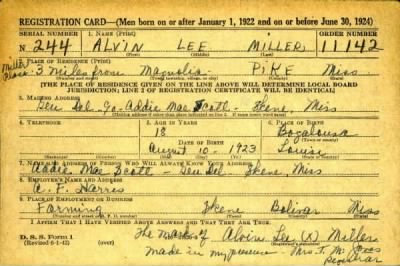 REGISTRATION CARD—(Men born on or after January 1, 1922 and on or before June 30, 1924)
SERIAL NUMBER 1. NAME (Print) ORDER NUMBER
N 244 ALVIN LEE MILLER 11142
(First) (Middle) (Last)
Miller Place
2. PLACE OF RESIDENCE (Print)
3 miles from Magnolia PIKE Miss
[THE PLACE OF RESIDENCE GIVEN ON THE LINE ABOVE WILL DETERMINE LOCAL BOARD
JURISDICTION; LINE 2 OF REGISTRATION CERTIFICATE WILL BE IDENTICAL]
3. MAILING ADDRESS
Gen Del Addie Mae Scott - Skene, Miss
4. TELEPHONE 5. AGE IN YEARS 6. PLACE OF BIRTH
18 Bogalousa
DATE OF BIRTH
August 10 1923 Louisi
7. NAME AND ADDRESS OF PERSON WHO WILL ALWAYS KNOW YOUR ADDRESS
Addie Mae Scott - Gen Del - Skene, Miss
8. EMPLOYER'S NAME AND ADDRESS
C. F. Harres
9. PLACE OF EMPLOYMENT OR BUSINESS
Farming Skene Bolivar Miss
I AFFIRM THAT I HAVE VERIFIED ABOVE ANSWERS AND THAT THEY ARE TRUE.
D. S. S. Form 1 The mark of Alvin Lee (X) Miller
(Revised 6-1-42) made in my presence Mrs. T. M. Jones
Registrar